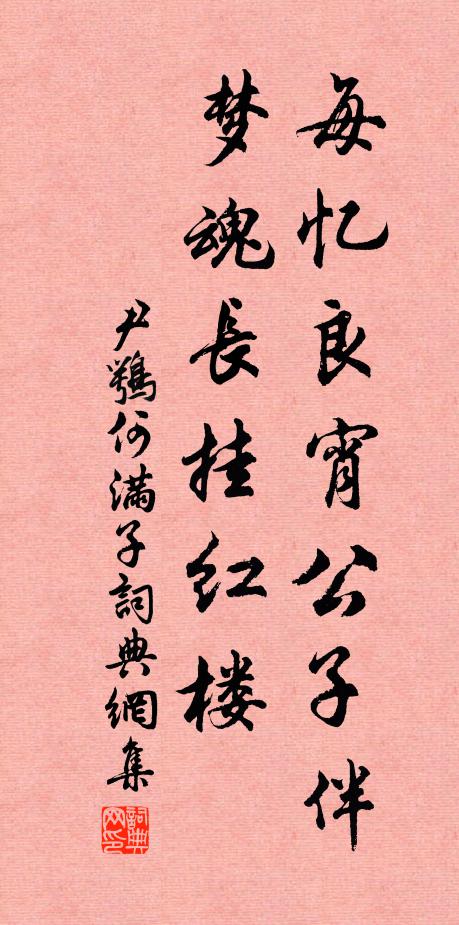 每忆良宵公子伴
梦魂长挂红楼
尹鶚何满子詞典網集
詞典网印